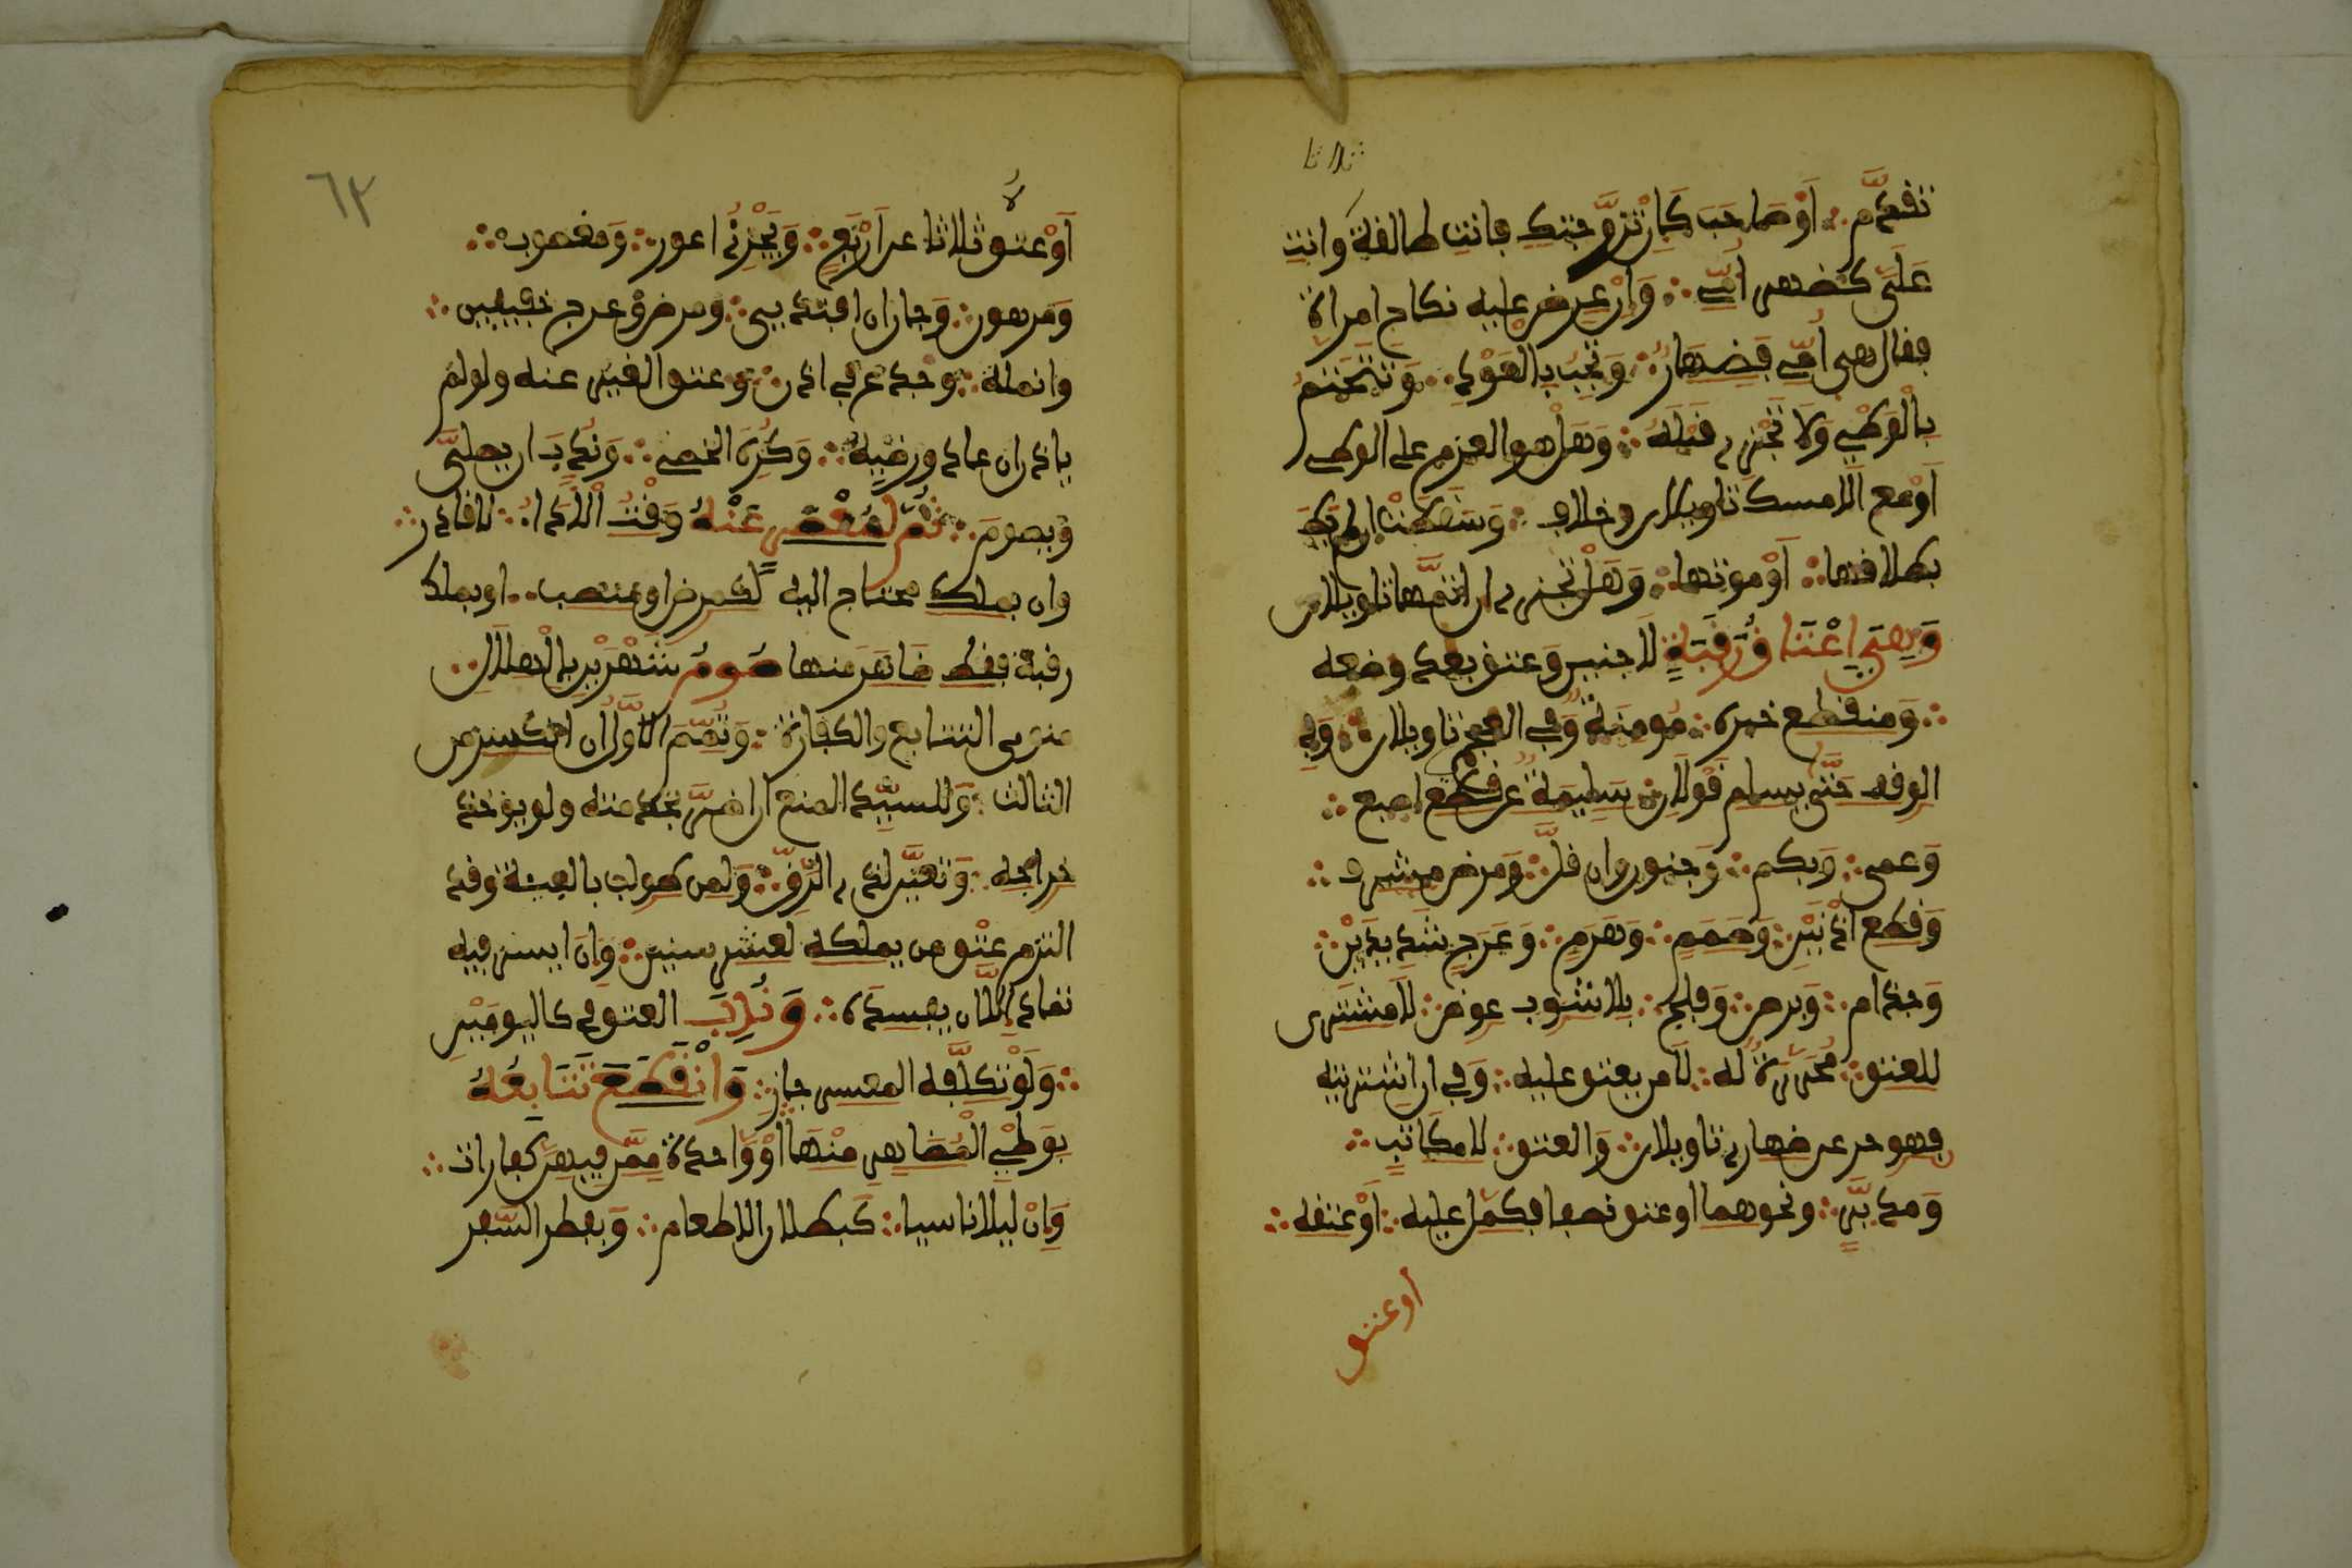 ثلاثا
تقدم أو صاحب كإن تزوجتك فانت طالق وانت
علي كظهر أمي وإن عرض عليه نكاح امراة
فقال هي أمي فظهار وتجب بالعود وتتحتم
بالوطي ولا تجزي قبله وهل هو العزم على الوطء
أو مع الامساك تاويلان وخلاف وسقطت إن لم يطأ
بطلاقها أو موتها وهل تجزي ان اتمها تاويلان
وهي إعتاق رقبة لا جنين وعتق بعد وضعه
ومنقطع خبره مومنة وفي العجمي تاويلان وفي
الوقف حتى يسلم قولان سليمة عن قطع اصبع
وعمى وبكم وجنون وان قل ومرض مشرف
وقطع اذنين وصمم وهرم وعرج شديدين
وجذام وبرص وفلج بلا شوب عوض لا مشترى
للعتق محررة له لا من يعتق عليه وفي ان اشتريته
فهو حر عن ظهاري تاويلان والعتق لا مكاتب
ومدبر ونحوهما او عتق نصفا فكمل عليه أو عتقه
أو عتق
٦٣
لا
أو عتق ثلاثا عن أربع ويجزئ اعور ومغصوب
ومرهون وجان ان افتدي ومرض وعرج خفيفين
وانملة وجدع في اذن وعتق الغير عنه ولو لم
ياذن ان عاد ورضيه وكره الخصي وندب ان يصلي
ويصوم ثم لمعسر عنه وقت الأداء لا قادر
وان بملك محتاج اليه لكمرض او منصب او بملك
رقبة فقط ظاهر منها صوم شهرين بالهلال
منوي التتابع والكفارة وتمم الأول ان انكسر من
الثالث وللسيد المنع ان اضر بخدمته ولو يؤد
خراجه وتعين لذي الرق ولمن طولب بالفيئة وقد
التزم عتق من يملكه لعشر سنين وان ايسر فيه
تمادى إلا ان يفسده وندب العتق في كاليومين
ولو تكلفه المعسر جاز وانقطع تتابعه
بوطي المظاهر منها أو واحدة ممن فيهن كفارات
وإن ليلا ناسيا كبطلان الاطعام وبفطر السفر